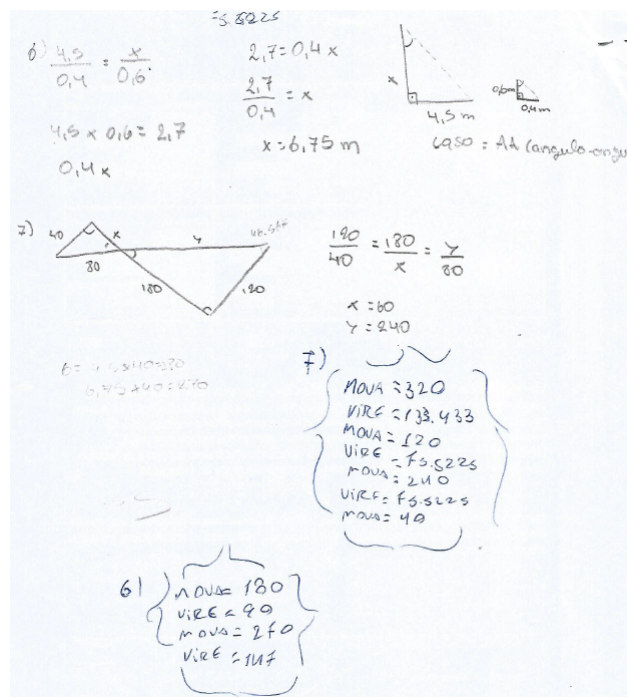 6) 4,5/0,4 = x/0,6
4,5 x 0,6 = 2,7
0,4 x
2,7 = 0,4 x
2,7/0,4 = x
x = 6,75 m
x
4,5 m
0,6m
0,4m
caso = AA (angulo-angu
7) 40
x
80
y
180
120
120/40 = 180/x = y/80
x = 60
y = 240
7)
MOVA = 320
VIRE = 133.433
MOVA = 120
VIRE = 75.5225
MOVA = 240
VIRE = 75.5225
MOVA = 40
6)
MOVA = 180
VIRE = 90
MOVA = 270
VIRE = 147